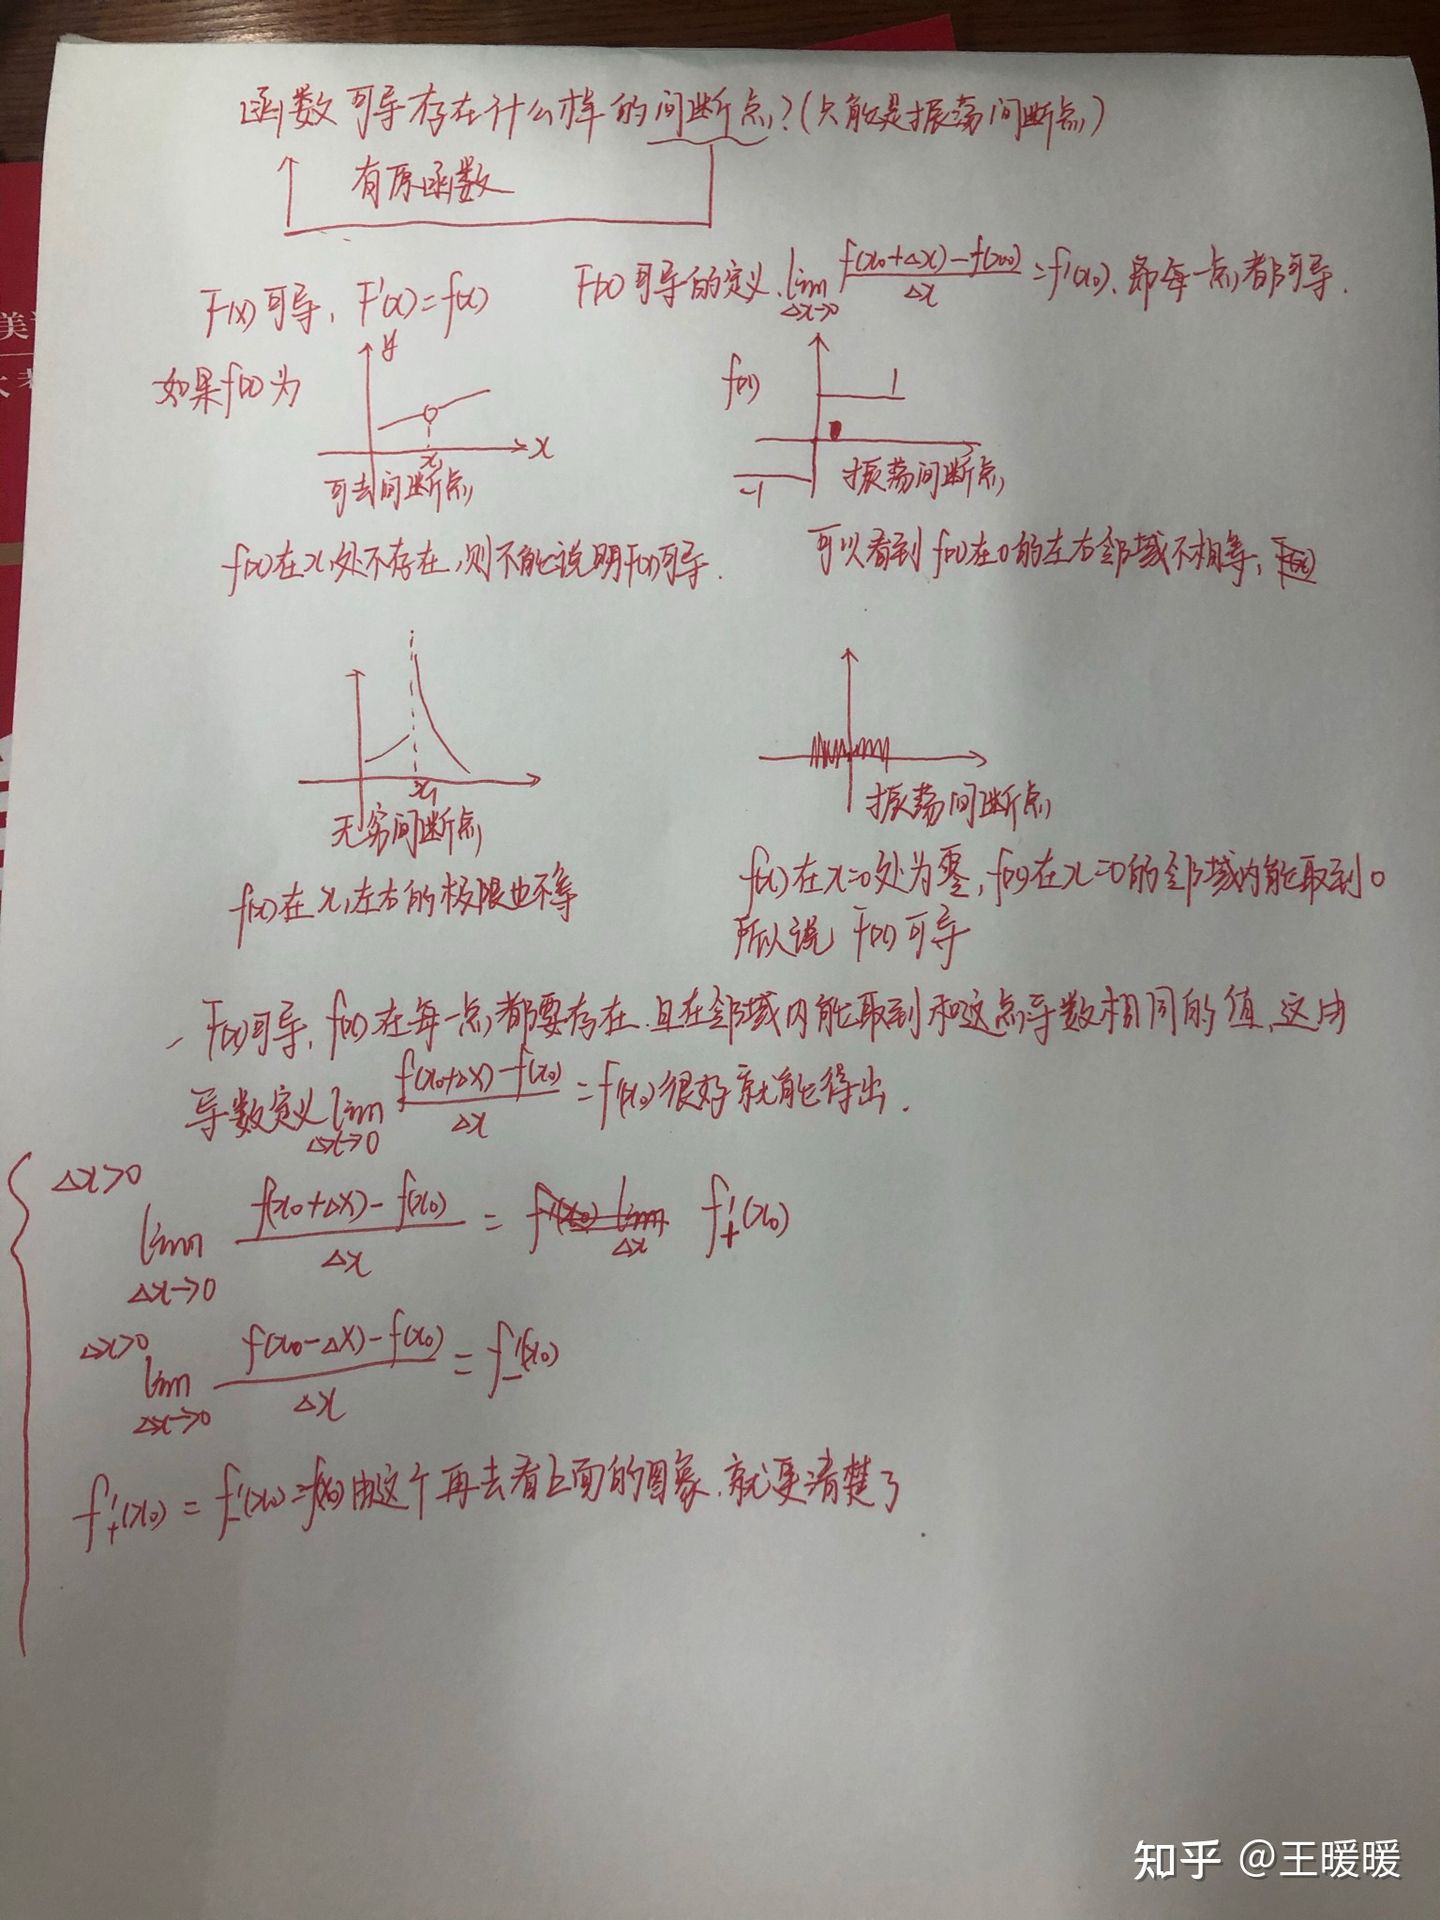 函数可导存在什么样的间断点?(只能是振荡间断点)
有原函数
F(x)可导, F'(x)=f(x)
F(x)可导的定义. lim Δx→0 f(x₀+Δx)-f(x₀) / Δx = f'(x₀). 即每一点都可导.
如果f(x)为
y
x₁
x
可去间断点
f(x)
1
-1
振荡间断点
f(x)在x₁处不存在,则不能说明F(x)可导.
可以看到f(x)在0的左右邻域不相等,
x₁
无穷间断点
f(x)在x₁左右的极限也不等
振荡间断点
f(x)在x=0处为零, f(x)在x=0的邻域内能取到0
所以说 F(x)可导
F(x)可导, f(x)在每一点都要存在.且在邻域内能取到和这点导数相同的值.这由
导数定义 lim Δx→0 f(x₀+Δx)-f(x₀) / Δx = f'(x₀)很好就能得出.
Δx>0
lim Δx→0 f(x₀+Δx)-f(x₀) / Δx = f'₊(x₀)
Δx>0
lim Δx→0 f(x₀-Δx)-f(x₀) / Δx = f'₋(x₀)
f'₊(x₀) = f'₋(x₀) = f(x₀) 由这个再去看上面的图象.就更清楚了
知乎 @王暖暖